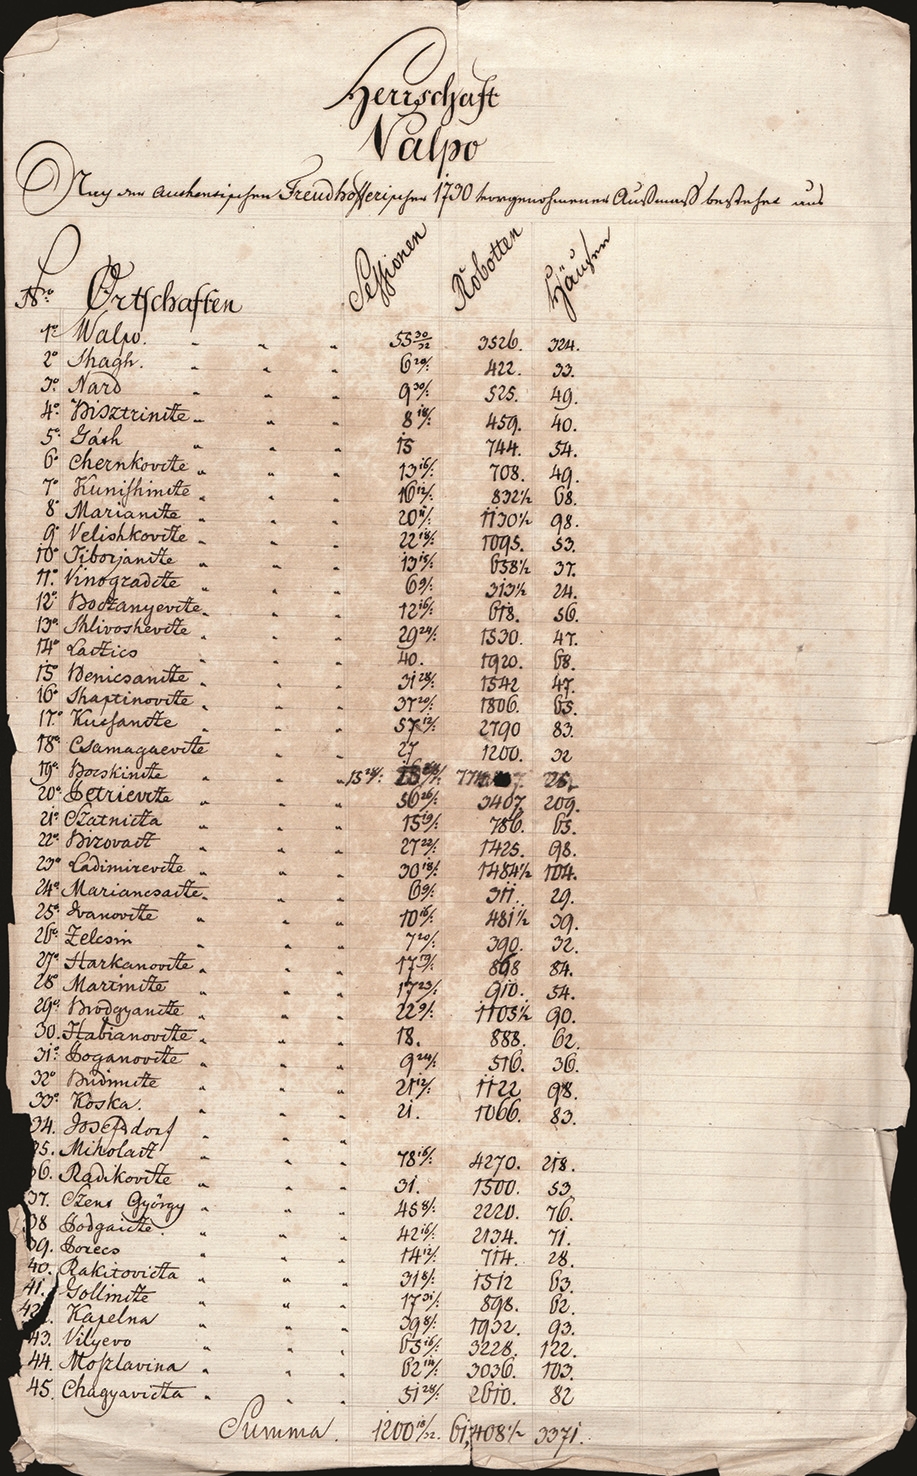 Herrschaft
Valpo
Nach der Authentischen Freudhofferischer 1730 vorgenohmener Außmass bestehet aus
Nro Ortschaften Sessionen Robotten Häuser
1o Walpo. 55 30/32 3526. 324.
2o Shagh. 6 20/: 422. 33.
3o Nard 9 30/: 525. 49.
4o Bisztrincze 8 18/: 459. 40.
5o Gáth 15 744. 54.
6o Chernkovcze 13 16/: 708. 49.
7o Kunishincze 16 12/: 832½ 68.
8o Mariancze 20 11/: 1130½ 98.
9o Velishkovcze 22 18/: 1095. 53.
10o Tiborjancze 13 15/: 658½ 37.
11o Vinogradcze 6 9/: 313½ 24.
12o Boczanyevcze 12 16/: 618. 56.
13o Shlivoshevcze 29 24/: 1530. 47.
14o Laczics 40. 1920. 68.
15o Benicsancze 31 28/: 1542 47.
16o Shaptinovcze 37 20/: 1806. 65.
17o Kucsancze 57 12/: 2790 83.
18o Csamagaevcze 27 1200. 32
19o Bocskincze 15 28/:
20o Petrievcze 56 26/: 3407. 209.
21o Czatnicza 15 19/: 786. 65.
22o Bizovacz 27 22/: 1425. 98.
23o Ladimirevcze 30 18/: 1484½ 104.
24o Mariancsacze 6 9/: 311. 29.
25o Ivanovcze 10 16/: 481½ 39.
26o Zelcsin 7 20/: 390. 32.
27o Harkanovcze 17 19/: 868 84.
28o Martincze 17 23/: 910. 54.
29o Brodgyancze 22 9/: 1105½ 90.
30. Habianovcze 18. 888. 62.
31o Poganovcze 9 24/: 516. 36.
32o Budimcze 21 12/: 1122 98.
33o Koska. 21. 1066. 83.
34. Josefsdorf
35. Miholacz 78 16/: 4270. 218.
36. Radikovcze 31. 1500. 53
37. Szent György 45 8/: 2220. 76.
38 Podgaicze. 42 16/: 2134. 71.
39. Porecs 14 12/: 714. 28.
40. Rakitovicza 31 8/: 1512 63.
41. Gollincze 17 31/: 898. 62.
42. Kapelna 39 8/: 1932. 93.
43. Vilyevo 65 16/: 3228. 122.
44. Moszlavina 62 14/: 3036. 103.
45. Chagyavicza 51 28/: 2610. 82
Summa. 1200 18/32. 61,408½ 3371.